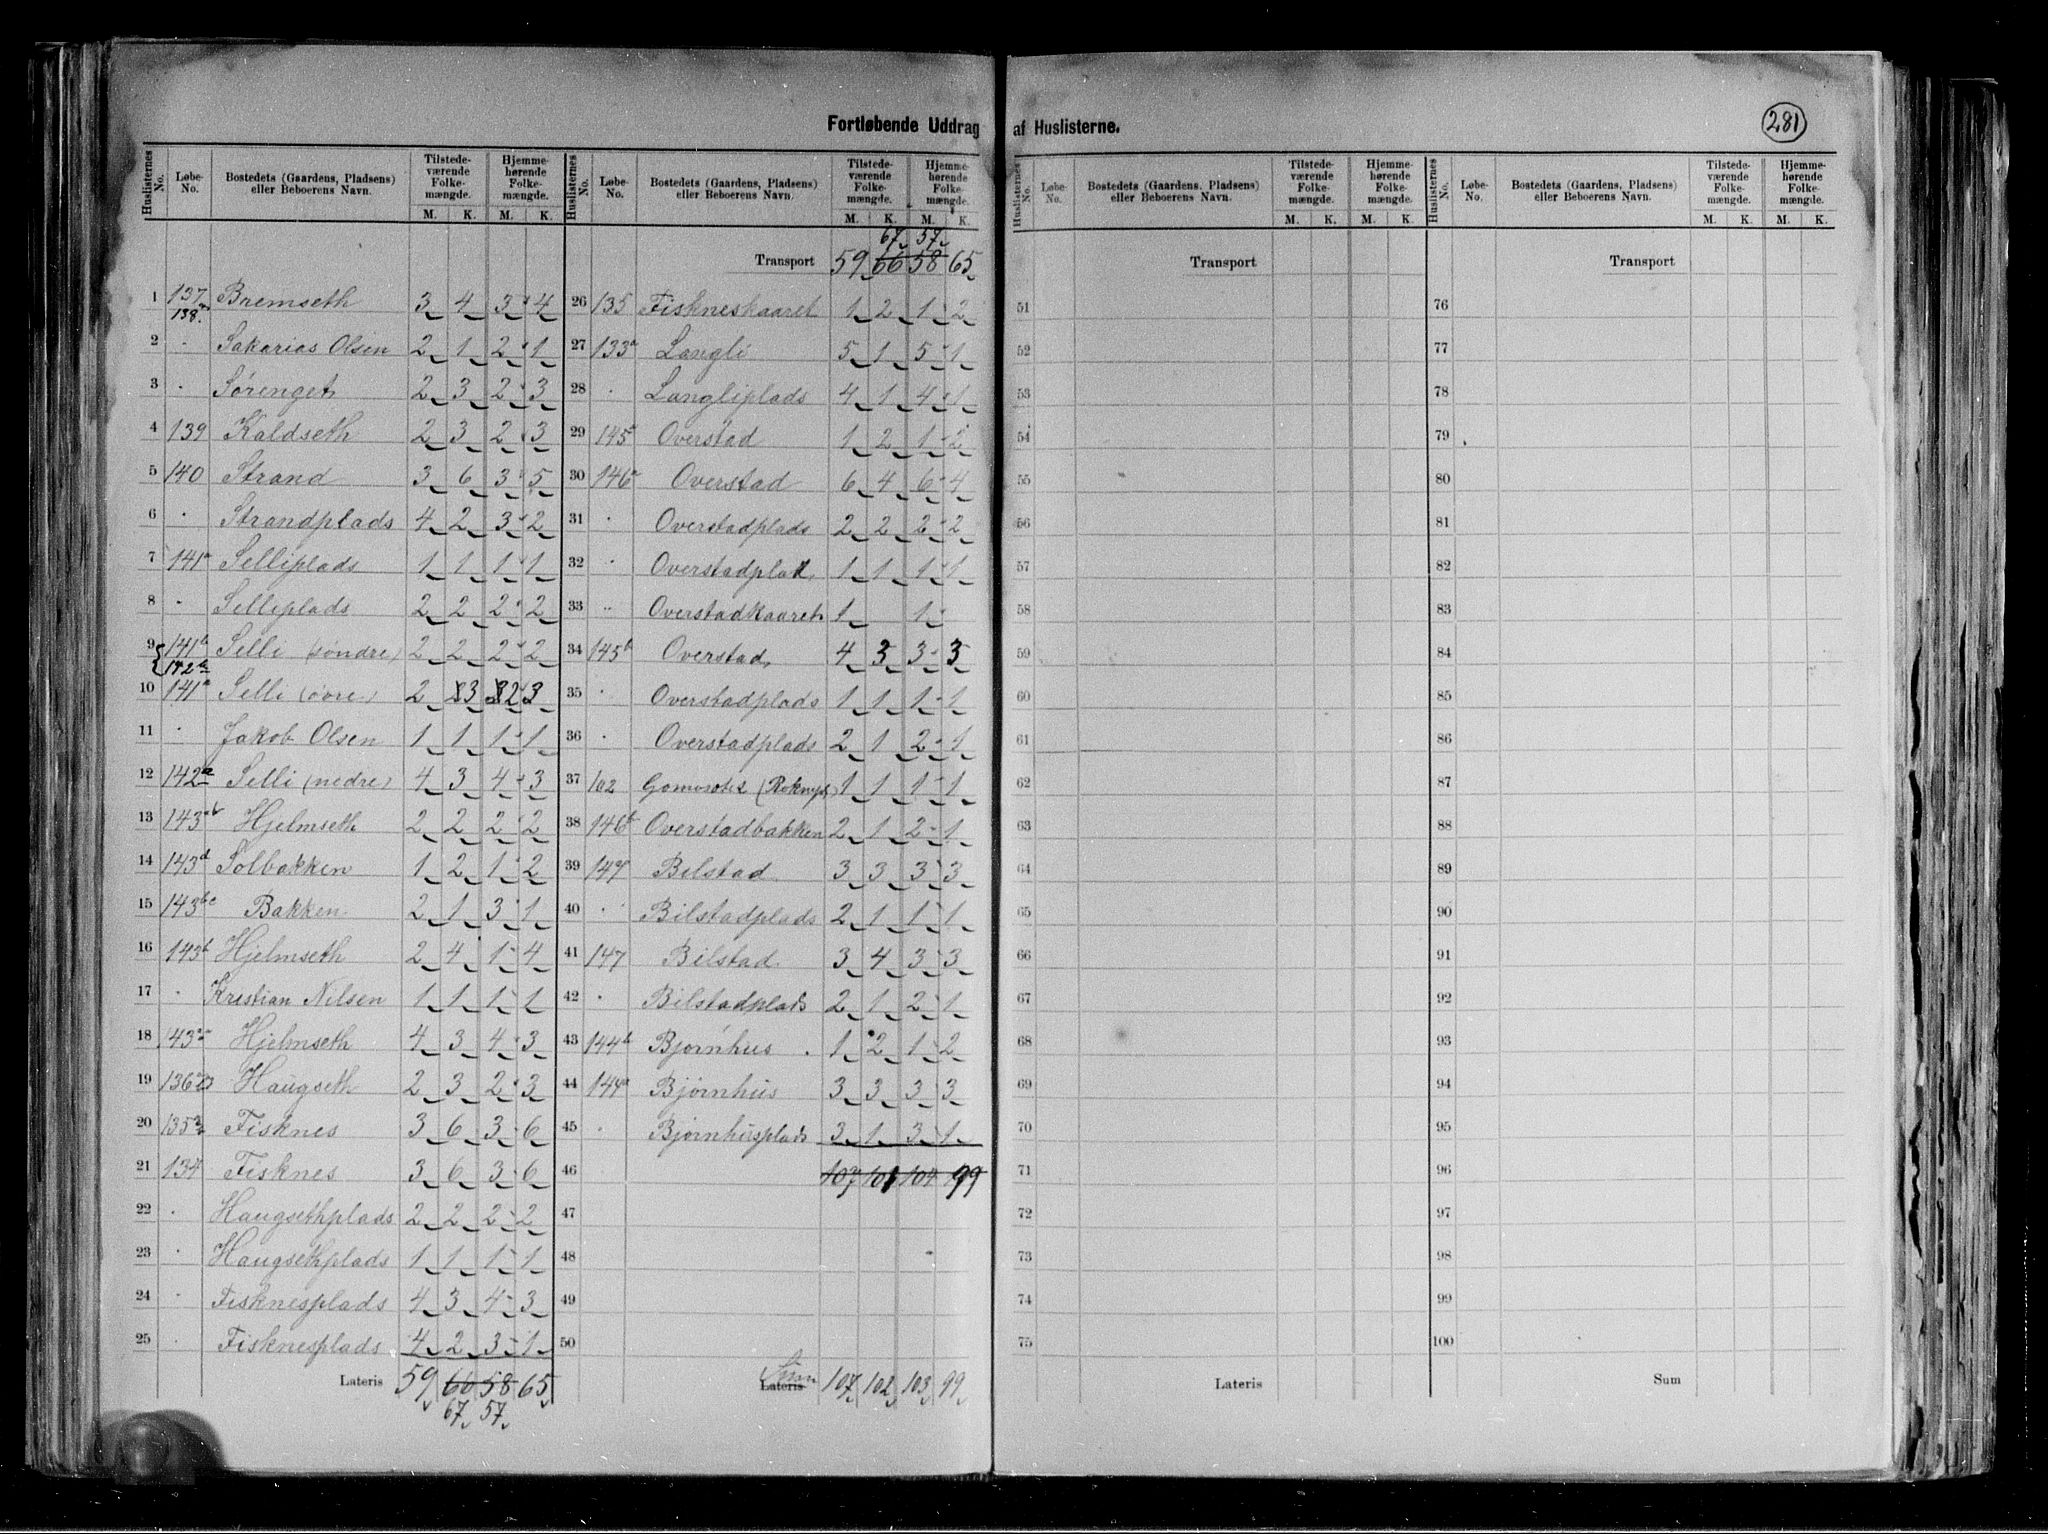 Fortløbende Uddrag af Huslisterne.
281
Huslisternes No. Løbe-No. Bostedets (Gaardens, Pladsens) eller Beboerens Navn. Tilstedeværende Folkemængde. M. K. Hjemmehørende Folkemængde. M. K.
1 137 138 Bremseth 3 4 3 4
2 " Sakarias Olsen 2 1 2 1
3 " Sørenget 2 3 2 3
4 139 Kaldseth 2 3 2 3
5 140 Strand 3 6 3 5
6 " Strandplads 4 2 3 2
7 141a Selliplads 1 1 1 1
8 " Selliplads 2 2 2 2
9 141b 142b Selli (søndre) 2 2 2 2
10 141a Selli (øvre) 2 3 2 3
11 " Jakob Olsen 1 1 1 1
12 142a Selli (nedre) 4 3 4 3
13 143b Hjelmseth 2 2 2 2
14 143d Solbakken 1 2 1 2
15 143bc Bakken 2 1 3 1
16 143b Hjelmseth 2 4 1 4
17 " Kristian Nilsen 1 1 1 1
18 143a Hjelmseth 4 3 4 3
19 136 Haugseth 2 3 2 3
20 135 Fisknes 3 6 3 6
21 134 Fisknes 3 6 3 6
22 " Haugsethplads 2 2 2 2
23 " Haugsethplads 1 1 1 1
24 " Fisknesplads 4 3 4 3
25 " Fisknesplads 4 2 3 1
Lateris 59 66 58 65
67 57
Huslisternes No. Løbe-No. Bostedets (Gaardens, Pladsens) eller Beboerens Navn. Tilstedeværende Folkemængde. M. K. Hjemmehørende Folkemængde. M. K.
67 57
Transport 59 66 58 65
26 135 Fiskneskaaret 1 2 1 2
27 133a Langli 5 1 5 1
28 " Langliplads 4 1 4 1
29 145 Overstad 1 2 1 2
30 146a Overstad 6 4 6 4
31 " Overstadplads 2 2 2 2
32 " Overstadplads 1 1 1 1
33 " Overstadkaaret 1 1
34 145b Overstad 4 3 3 3
35 " Overstadplads 1 1 1 1
36 " Overstadplads 2 1 2 1
37 102 1 1 1 1
38 146b Overstadbakken 2 1 2 1
39 147 Bilstad 3 3 3 3
40 " Bilstadplads 2 1 1 1
41 147 Bilstad 3 4 3 3
42 " Bilstadplads 2 1 2 1
43 144b Bjørnhus 1 2 1 2
44 144a Bjørnhus 3 3 3 3
45 " Bjørnhusplads 3 1 3 1
46 107 101 104 99
47
48
49
50
Sum Lateris 107 102 103 99
Huslisternes No. Løbe-No. Bostedets (Gaardens, Pladsens) eller Beboerens Navn. Tilstedeværende Folkemængde. M. K. Hjemmehørende Folkemængde. M. K.
Transport
51
52
53
54
55
56
57
58
59
60
61
62
63
64
65
66
67
68
69
70
71
72
73
74
75
Lateris
Huslisternes No. Løbe-No. Bostedets (Gaardens, Pladsens) eller Beboerens Navn. Tilstedeværende Folkemængde. M. K. Hjemmehørende Folkemængde. M. K.
Transport
76
77
78
79
80
81
82
83
84
85
86
87
88
89
90
91
92
93
94
95
96
97
98
99
100
Sum